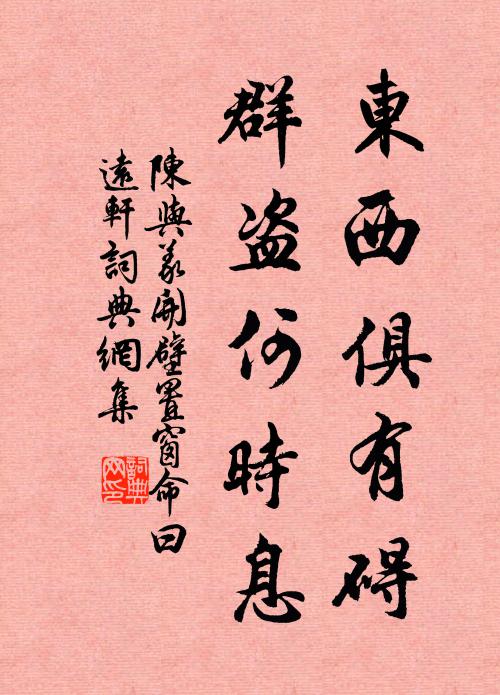 東西俱有碍
群盗何時息
陳與義開壁置窗命曰
遠軒詞典網集
詞典网印